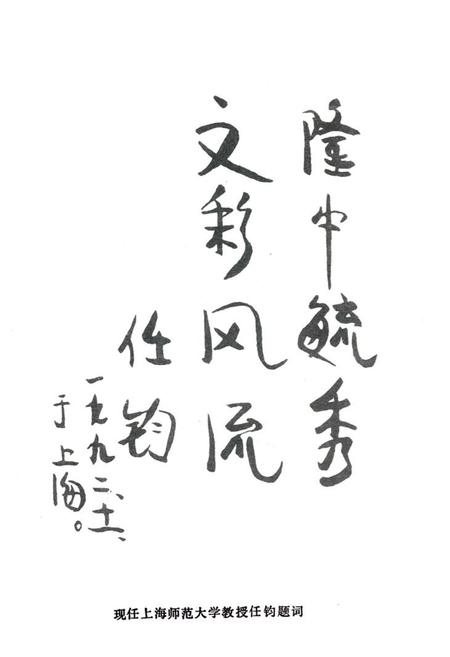 隆中毓秀
文彩风流
任钧
一九九二、十一、
于上海。
现任上海师范大学教授任钧题词